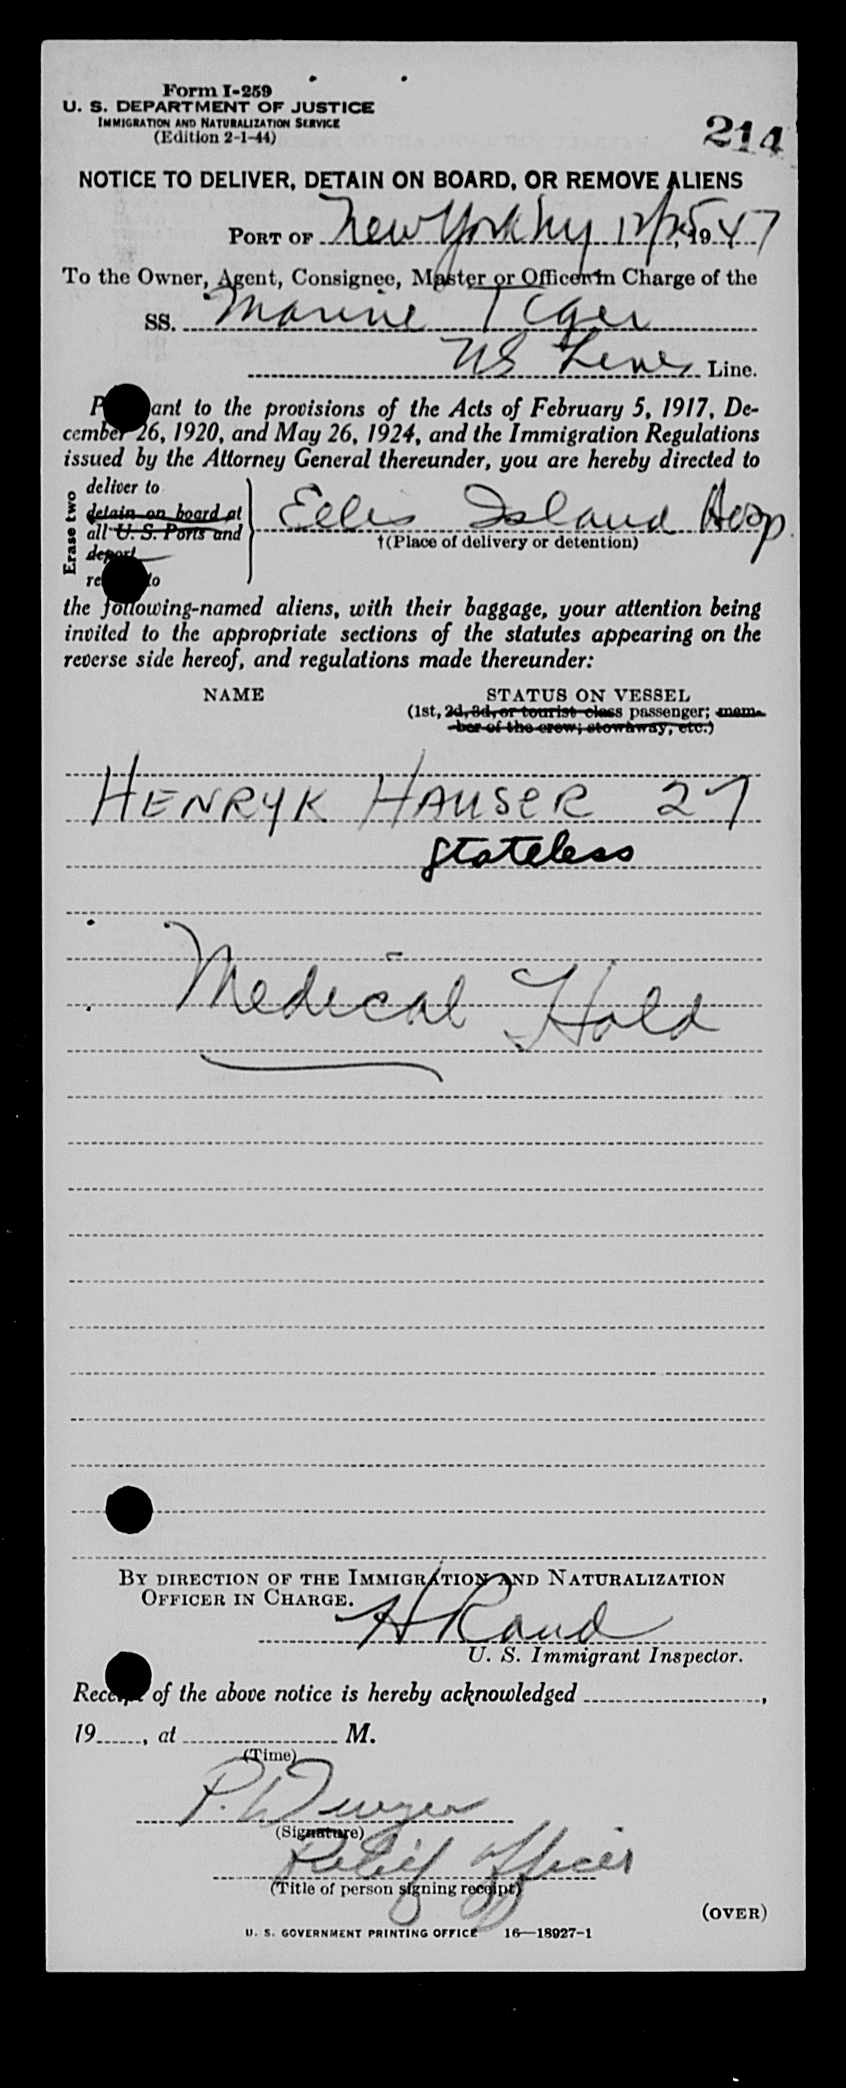 Form I-259
U. S. DEPARTMENT OF JUSTICE
IMMIGRATION AND NATURALIZATION SERVICE
(Edition 2-1-44)
214
NOTICE TO DELIVER, DETAIN ON BOARD, OR REMOVE ALIENS
PORT OF New York NY 12/25, 1947
To the Owner, Agent, Consignee, Master or Officer in Charge of the
SS. Marine Tiger
US Lines Line.
P ant to the provisions of the Acts of February 5, 1917, De-
cember 26, 1920, and May 26, 1924, and the Immigration Regulations
issued by the Attorney General thereunder, you are hereby directed to
Erase two
deliver to
detain on board at
all U. S. Ports and
deport
re to
Ellis Island Hosp.
†(Place of delivery or detention)
the following-named aliens, with their baggage, your attention being
invited to the appropriate sections of the statutes appearing on the
reverse side hereof, and regulations made thereunder:
NAME STATUS ON VESSEL
(1st, 2d, 3d, or tourist class passenger; mem-
ber of the crew; stowaway, etc.)
HENRYK HAUSER 27
stateless
Medical Hold
BY DIRECTION OF THE IMMIGRATION AND NATURALIZATION
OFFICER IN CHARGE.
H Rand
U. S. Immigrant Inspector.
Receipt of the above notice is hereby acknowledged ,
19 , at M.
(Time)
P. Dwyer
(Signature)
Relief Officer
(Title of person signing receipt)
(OVER)
U. S. GOVERNMENT PRINTING OFFICE 16—18927-1